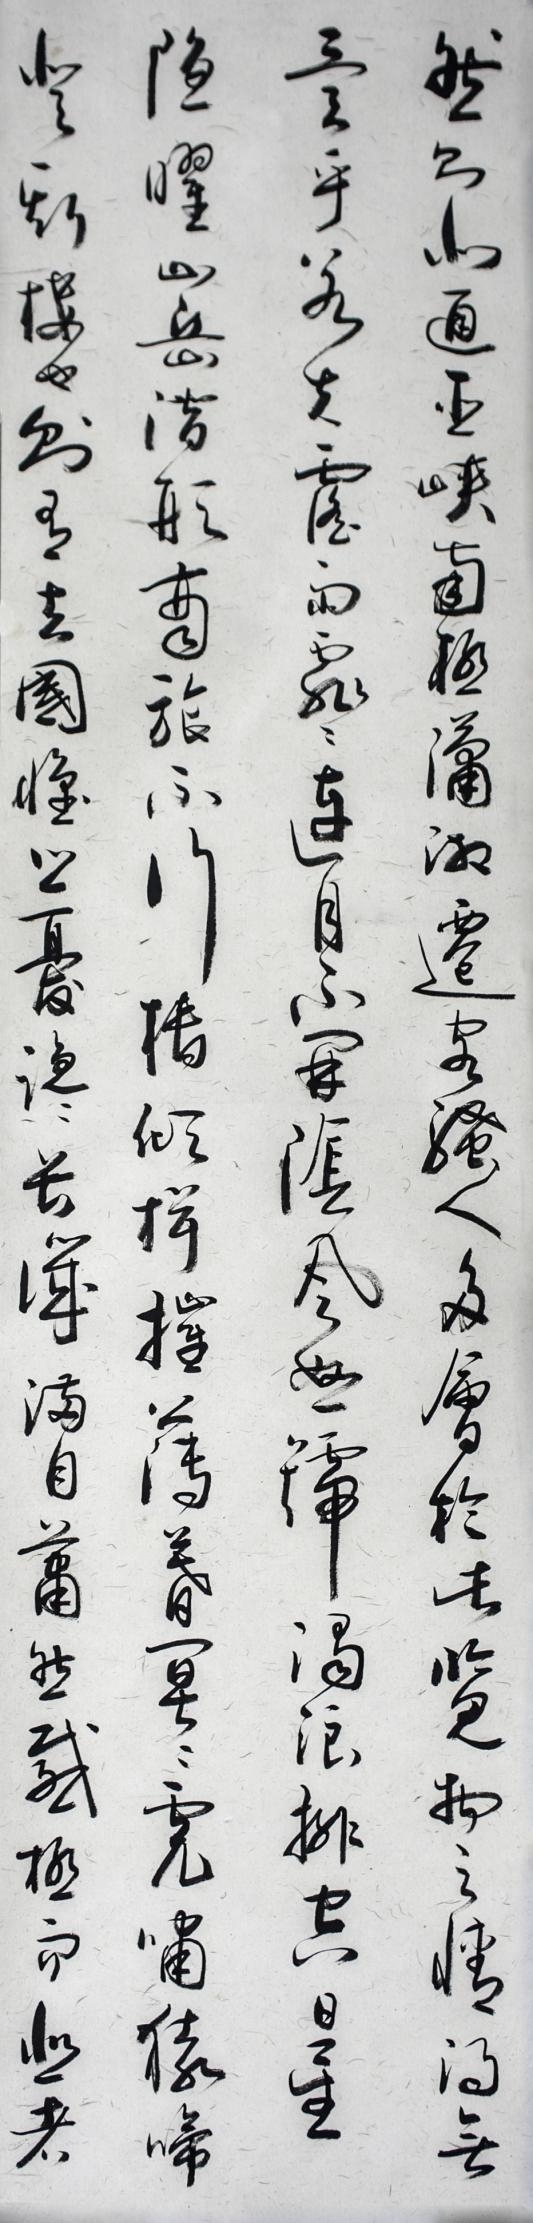 然則北通巫峽南極瀟湘遷客騷人多會於此覽物之情得無
異乎若夫霪雨霏〻連月不開陰風怒號濁浪排空日星
隱曜山岳潛形商旅不行檣傾楫摧薄暮冥〻虎嘯猿啼
登斯樓也則有去國懷鄉憂讒畏譏滿目蕭然感極而悲者